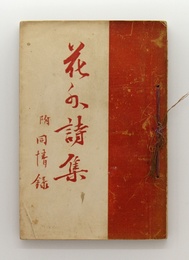 花外詩集
附同情録